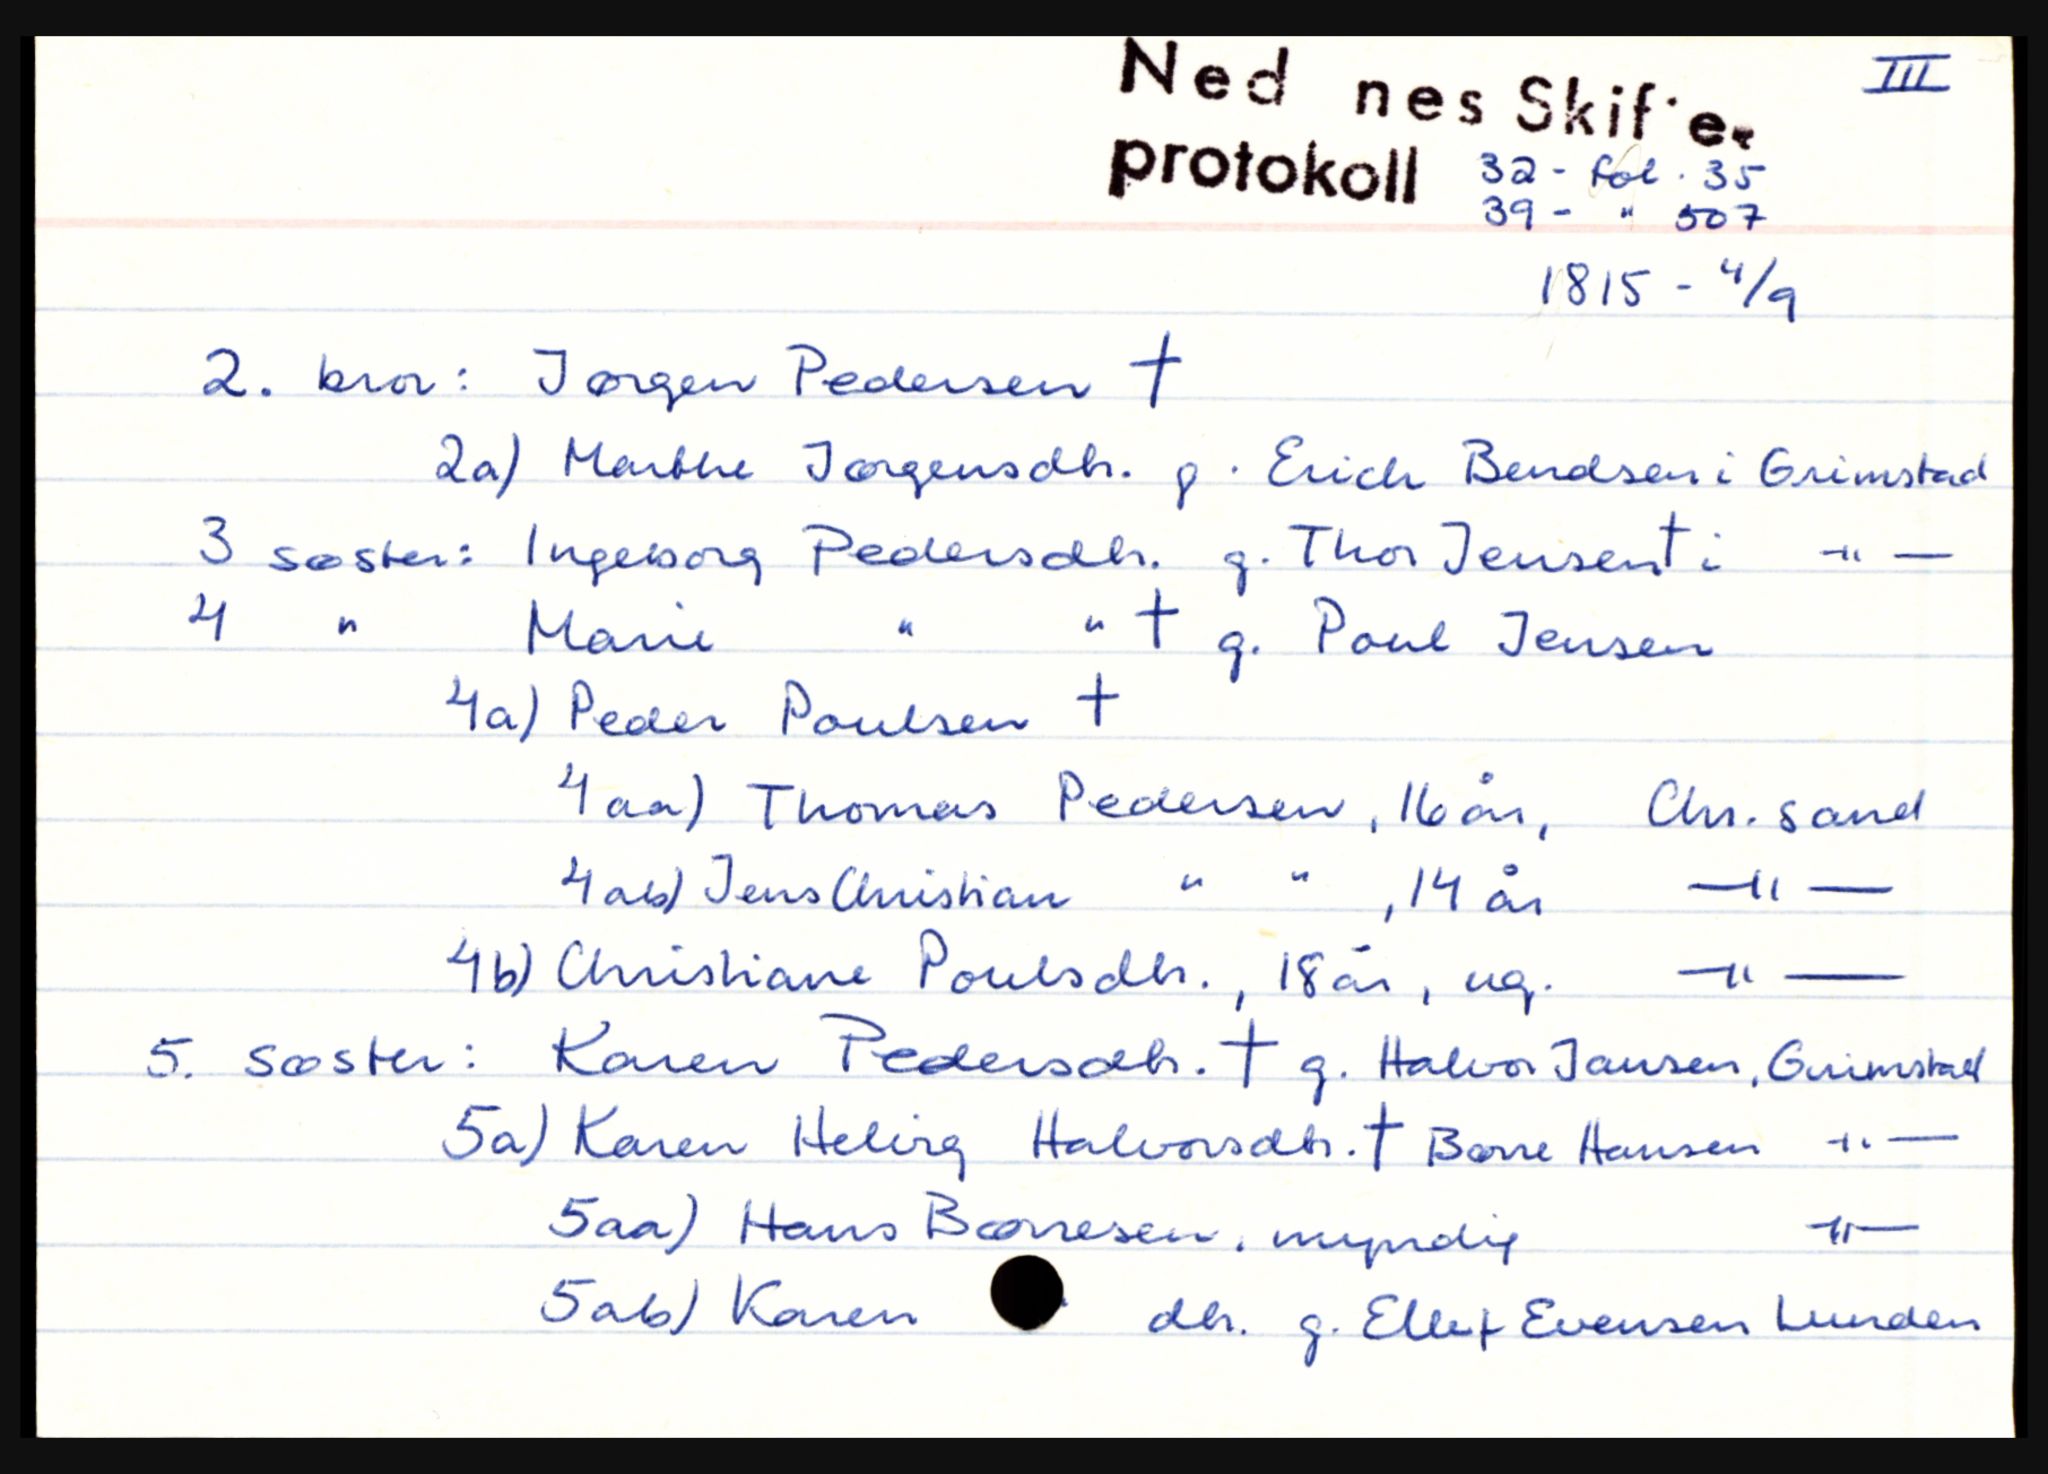 III
Ned nes Skif e
protokoll 32 - fol. 35
39 - " 507
1815 - 4/9
2. bror: Jørgen Pedersen †
2a) Marthe Jørgensdtr. g. Erich Bendsen i Grimstad
3 søster: Ingeborg Pedersdtr. g. Thor Jensen † i -"-
4 " Marie " " † g. Poul Jensen
4a) Peder Poulsen †
4aa) Thomas Pedersen, 16 år, Chr.sand
4ab) Jens Christian " " , 14 år -"-
4b) Christiane Poulsdtr., 18 år, ug. -"-
5. søster: Karen Pedersdtr. † g. Halvor Jansen, Grimstad
5a) Karen Helvig Halvorsdtr. † Børre Hansen -"-
5aa) Hans Børresen, myndig -"-
5ab) Karen dtr. g. Ellef Evensen Lunden